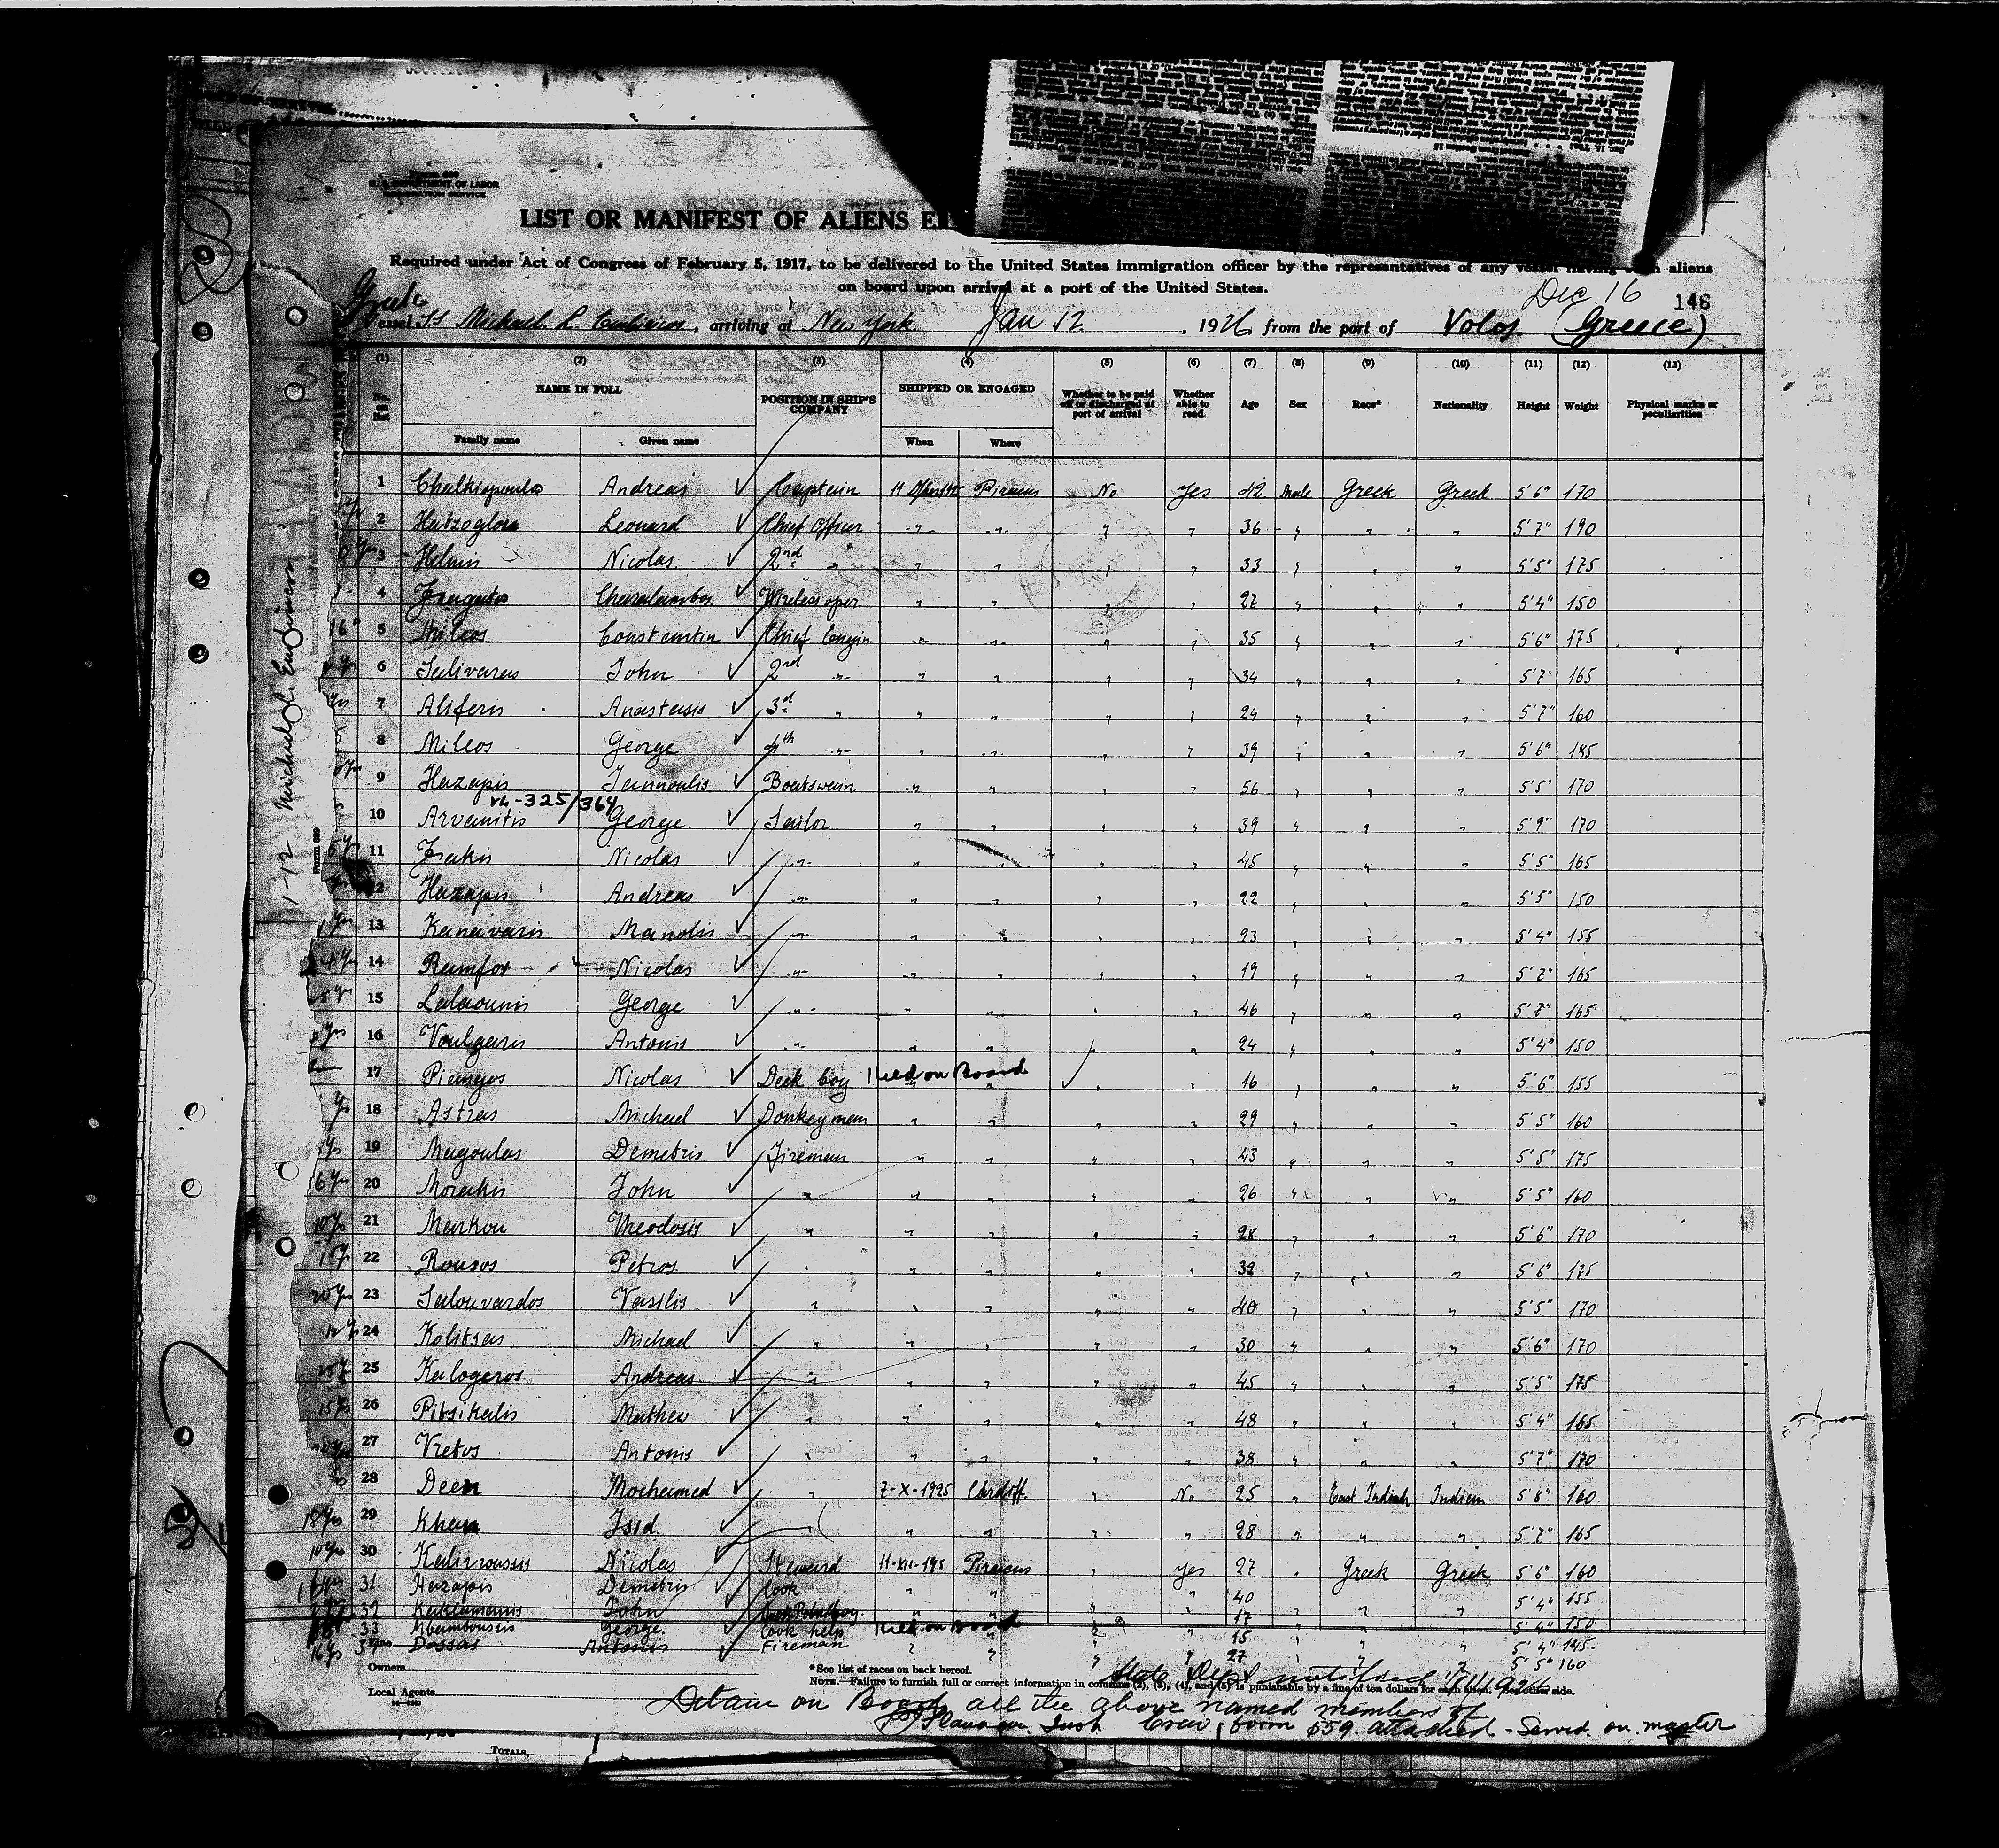 U. S. DEPARTMENT OF LABOR
IMMIGRATION SERVICE
LIST OR MANIFEST OF ALIENS
Required under Act of Congress of February 5, 1917, to be delivered to the United States immigration officer by the representatives of any vessel having such aliens
on board upon arrival at a port of the United States.
Dec 16 146
Greek
Vessel SS Michael L. , arriving at New York Jan 12 , 1926 from the port of Volos (Greece)
(1) (2) (3) (4) (5) (6) (7) (8) (9) (10) (11) (12) (13)
No. on list NAME IN FULL POSITION IN SHIP'S COMPANY SHIPPED OR ENGAGED Whether to be paid off or discharged at port of arrival Whether able to read Age Sex Race* Nationality Height Weight Physical marks or peculiarities
Family name Given name When Where
1 Andreas Captain 11 Piraeus No Yes 42 Male Greek Greek 5'6" 170
2 Hatzoglou Leonard Chief Officer " " " " 36 " " " 5'7" 190
3 Helmis Nicolas 2nd " " " " " 33 " " " 5'5" 175
4 Charalambos Wireless oper " " " " 27 " " " 5'4" 150
5 Mileos Constantin Chief Engin " " " " 35 " " " 5'6" 175
6 Salivaras John 2nd " " " " " 34 " " " 5'7" 165
7 Aliferis Anastasis 3d " " " " " 24 " " " 5'7" 160
8 Mileos George 4th " " " " " 39 " " " 5'6" 185
9 Hazapis Jannoulis Boatswain " " " " 56 " " " 5'5" 170
-325/364
10 Arvanitis George Sailor " " " " 39 " " " 5'9" 170
11 Nicolas " " " " " 45 " " " 5'5" 165
12 Hazapis Andreas " " " " " 22 " " " 5'5" 150
13 Kanavaris Manolis " " " " " 23 " " " 5'4" 155
14 Ramfos Nicolas " " " " " 19 " " " 5'2" 165
15 Lalaounis George " " " " " 46 " " " 5'7" 165
16 Voulgaris Antonis " " " " " 24 " " " 5'4" 150
17 Piangos Nicolas Deck boy Held on Board " " 16 " " " 5'6" 155
18 Astras Michael Donkeyman " " " " 29 " " " 5'5" 160
19 Magoulas Demetris Fireman " " " " 43 " " " 5'5" 175
20 Morakis John " " " " " 26 " " " 5'5" 160
21 Markou Theodosis " " " " " 28 " " " 5'6" 170
22 Rousos Petros " " " " " 32 " " " 5'6" 175
23 Salouvardos Vasilis " " " " " 40 " " " 5'5" 170
24 Kolitsas Michael " " " " " 30 " " " 5'6" 170
25 Kalogeros Andreas " " " " " 45 " " " 5'5" 175
26 Pitsikalis Mathew " " " " " 48 " " " 5'4" 165
27 Vretos Antonis " " " " " 38 " " " 5'7" 170
28 Deen Mochamed " 7-X-1925 Cardiff. " No 25 " East Indian Indian 5'8" 160
29 Khan " " " " 28 " " " 5'7" 165
30 Nicolas Steward 11-XII-195 Piraeus " Yes 27 " Greek Greek 5'6" 160
31 Hazapis Demetris Cook " " " " 40 " " " 5'4" 155
32 Kaklamanis John " " " " 17 " " " 5'4" 150
33 George Cook help Held on Board " " 15 " " " 5'4" 145
34 Dassas Antonis Fireman " " " " 27 " " " 5'5" 160
Owners
Local Agents
*See list of races on back hereof.
NOTE.—Failure to furnish full or correct information in columns (2), (3), (4), and (5) is punishable by a fine of ten dollars for each alien. See other side.
State Dept notified
Detain on Board all the above named members of
Crew, form 659 attached - Served on master
TOTALS
1-12 Michael L.
Form 689